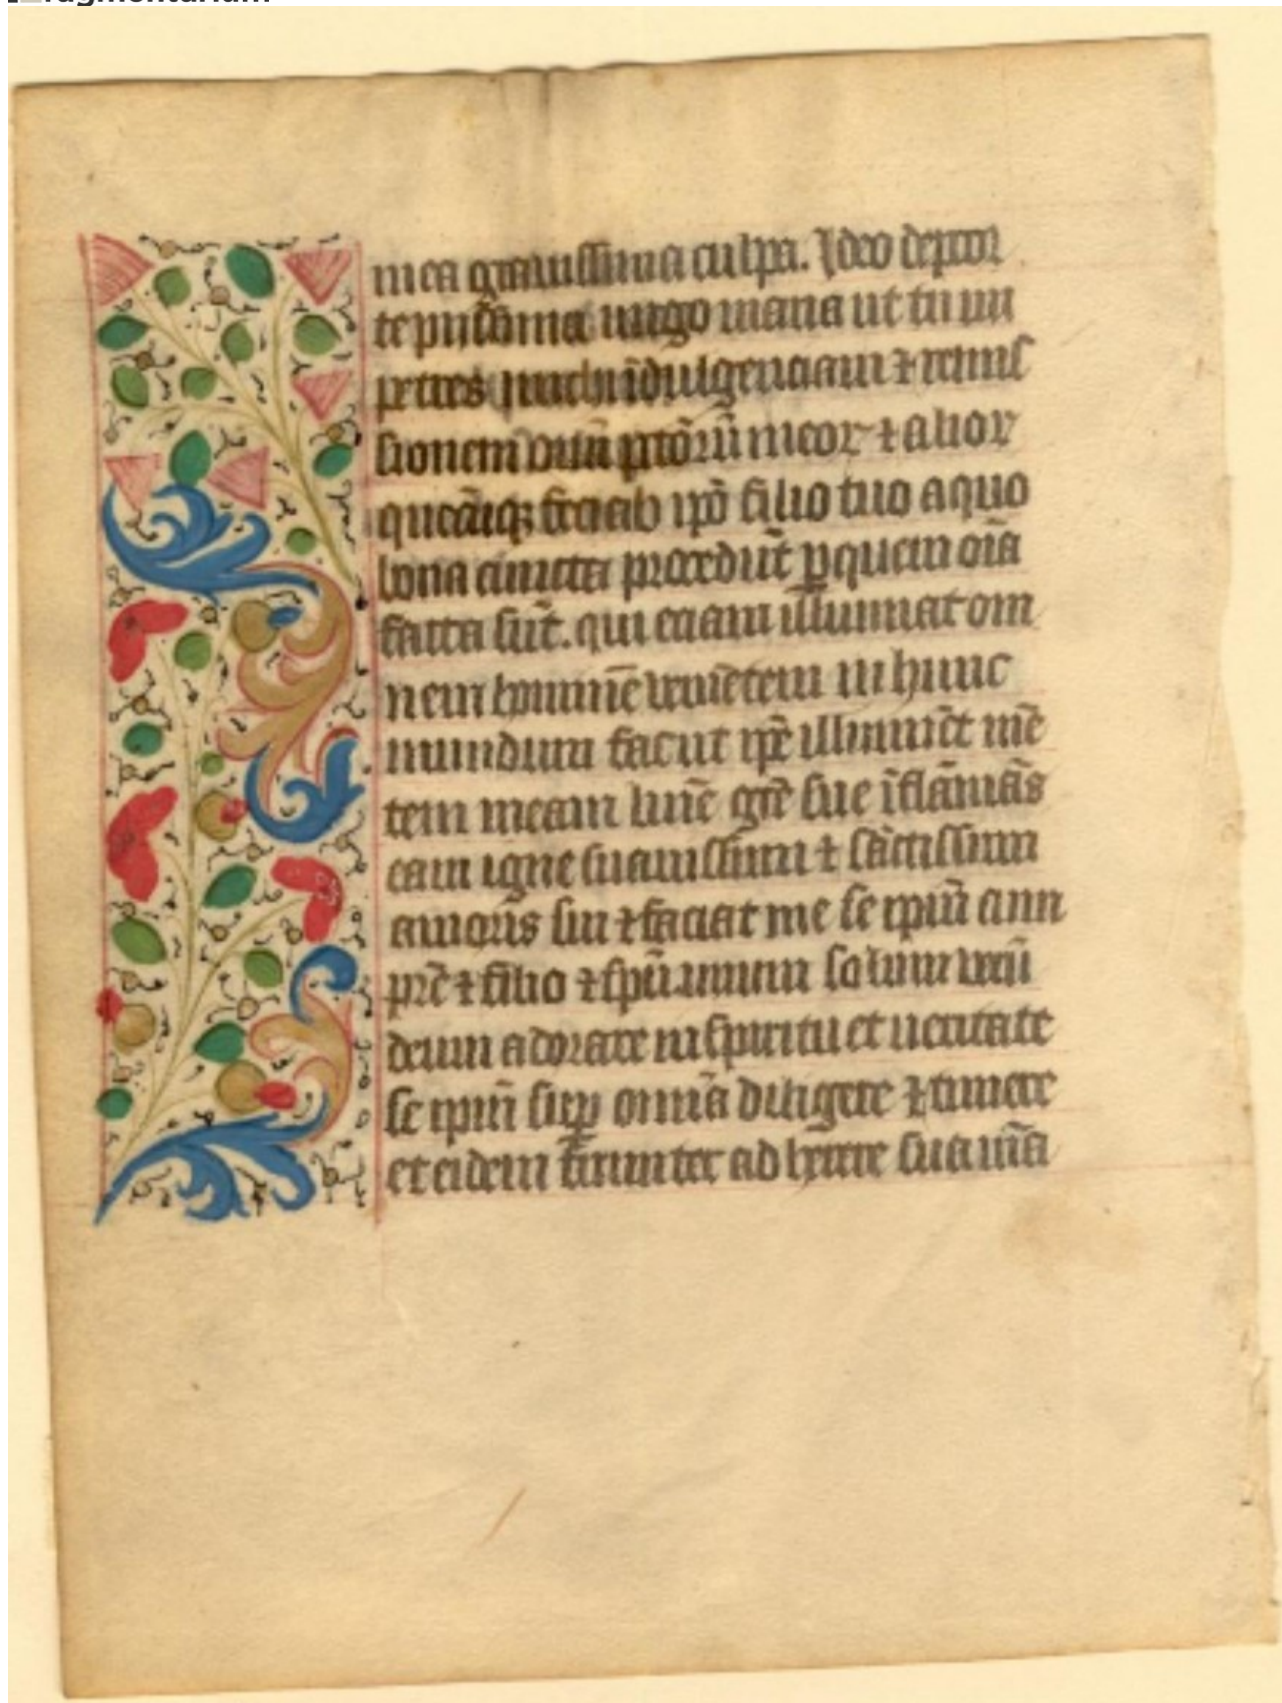 mea grauissima culpa. Ideo depcor
te piissima uirgo maria ut tu im
petres michi īdulgenciam ⁊ remis
sionem oīm pctōrū meorꝝ ⁊ alior
quecūqꝫ feci ab ipō filio tuo a quo
bona cuncta procedūt ꝑ quem oīa
facta sūt. qui eciam illuminat om
nem hominē uenietē in hunc
mundum faciat ipē illuminēt mē
tem meam lumē grē sue īflāmās
eam igne suauissimi ⁊ sāctissimi
amoris sui ⁊ faciat me se ipm̄ cum
prē ⁊ filio ⁊ spū unum solum uerū
deum adorare in spiritu et ueritate
se ipm̄ suꝑ omnia diligere ⁊ timere
et eidem firmiter adherere sua